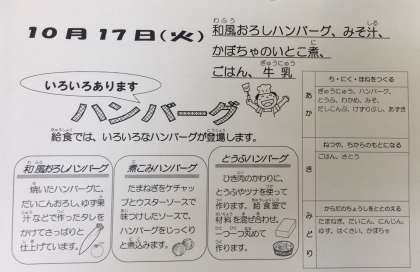 10月17日（火）
和風おろしハンバーグ、みそ汁、
かぼちゃのいとこ煮、
ごはん、牛乳
いろいろあります
ハンバーグ
給食では、いろいろなハンバーグが登場します。
和風おろしハンバーグ
焼いたハンバーグに、
だいこんおろし、ゆず果
汁などで作ったタレを
かけてさっぱりと
仕上げています。
煮こみハンバーグ
たまねぎをケチャッ
プとウスターソースで
味つけしたソースで、
ハンバーグをじっくり
と煮込みます。
とうふハンバーグ
ひき肉のかわりに、
とうふやツナを使って
作ります。給食室で
材料を混ぜ合わせ、
一つ一つ丸めて
作ります。
あか
ち・にく・ほねをつくる
ぎゅうにゅう、ハンバーグ、
とうふ、わかめ、みそ、
だしこんぶ、けずりぶし、あずき
き
ねつや、ちからのもとになる
ごはん、さとう
みどり
からだのちょうしをととのえる
たまねぎ、だいこん、にんじん、
ゆず、はくさい、かぼちゃ